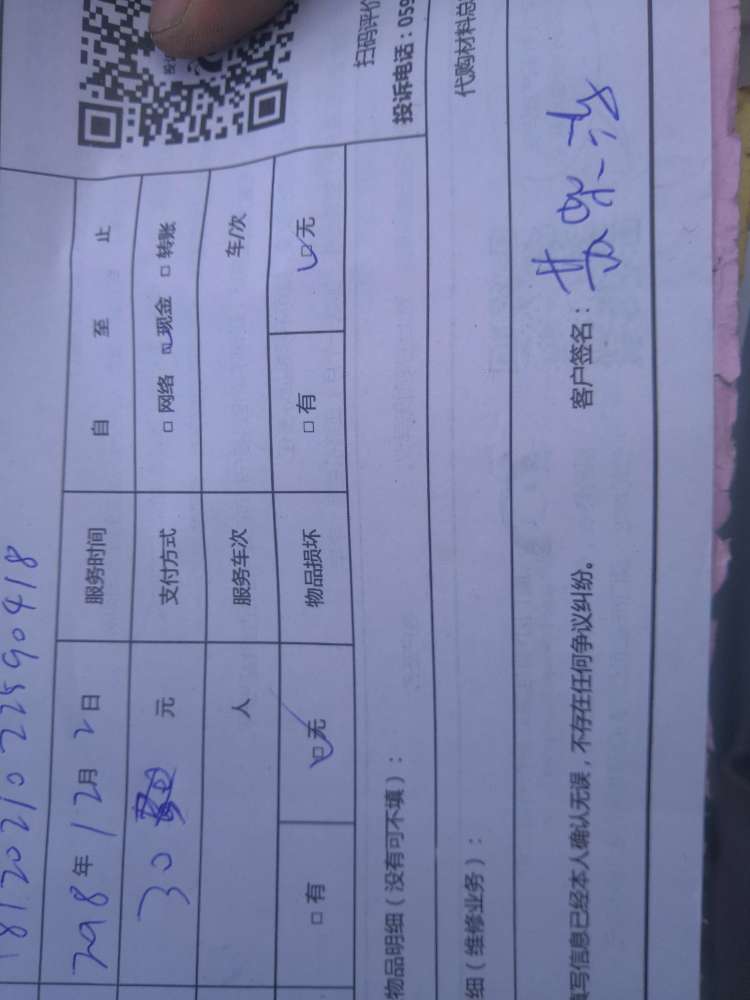 181202102259041 8
298年12月2日 服务时间 自 至 止
30 元 支付方式 □网络 ☑现金 □转账
人 服务车次 车/次
□有 ☑无 物品损坏 □有 ☑无
扫码评价
投诉电话：059
物品明细（没有可不填）：
代购材料总
细（维修业务）：
填写信息已经本人确认无误，不存在任何争议纠纷。 客户签名：